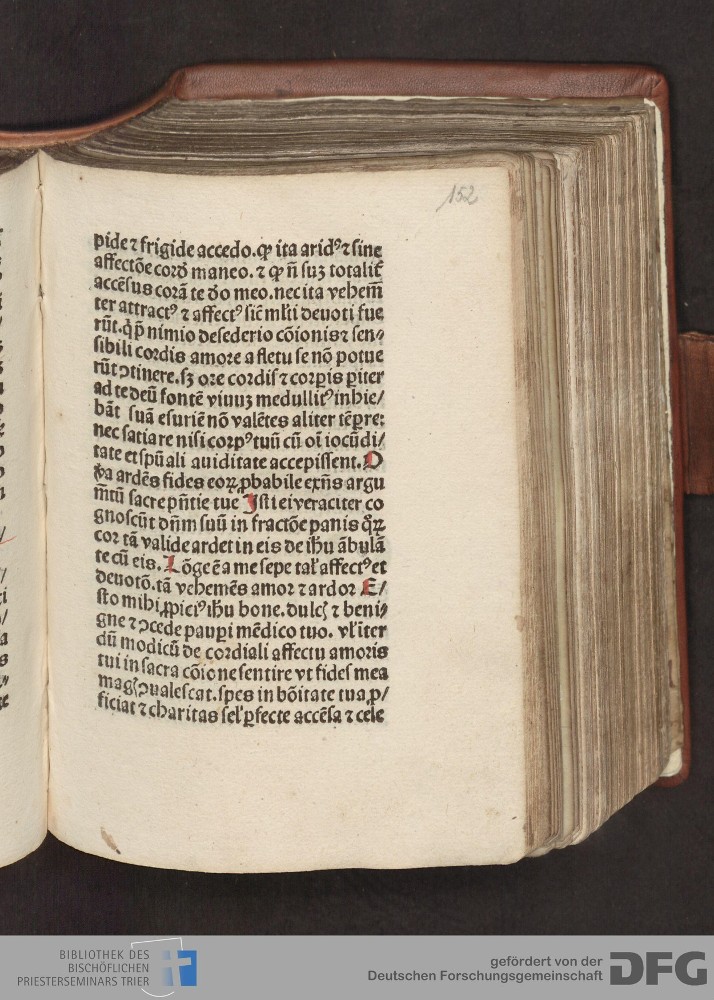 152
pide ⁊ frigide accedo. ꝙ ita aridꝰ ⁊ sine
affectōe cord̕ maneo. ⁊ ꝙ nō suꝫ totalit̕
accēsus corā te d̕o meo. nec ita vehem̄
ter attractꝰ ⁊ affectꝰ sic̄ ml̕ti deuoti fue
rūt. q̕ p̄ nimio desederio cōionis ⁊ sen⸗
sibili cordis amore a fletu se nō potue
rūt ꝯtinere. sꝫ ore cordis ⁊ corꝑis ꝑiter
ad te deū fontē viuuꝫ medullitꝰ inhie/
bāt suā esuriē nō valētes aliter tēꝑre:
nec satiare nisi corpꝰ tuū cū oī iocūdi/
tate et spūali auiditate accepissent. O
v̕a ardēs fides eoꝝ ꝓbabile exn̄s argu
m̄tū sacre pn̄tie tue Isti ei veraciter co
gnoscūt dn̄m suū in fractōe panis qͦꝝ
cor tā valide ardet in eis de ihu ābulā
te cū eis. Lōge ē a me sepe tal̕ affectꝰ et
deuotō. tā vehemēs amor ⁊ ardor E/
sto mihi ꝓpiciꝰ ihu bone. dulcꝭ ⁊ beni⸗
gne ⁊ ꝯcede pauꝑi mēdico tuo. vl̕iter
dū modicū de cordiali affectu amoris
tui in sacra cōione sentire vt fides mea
magꝭ ꝯualescat. spes in bōitate tua ꝓ/
ficiat ⁊ charitas sel̕ ꝑfecte accēsa ⁊ cele
BIBLIOTHEK DES
BISCHÖFLICHEN
PRIESTERSEMINARS TRIER
gefördert von der
Deutschen Forschungsgemeinschaft DFG